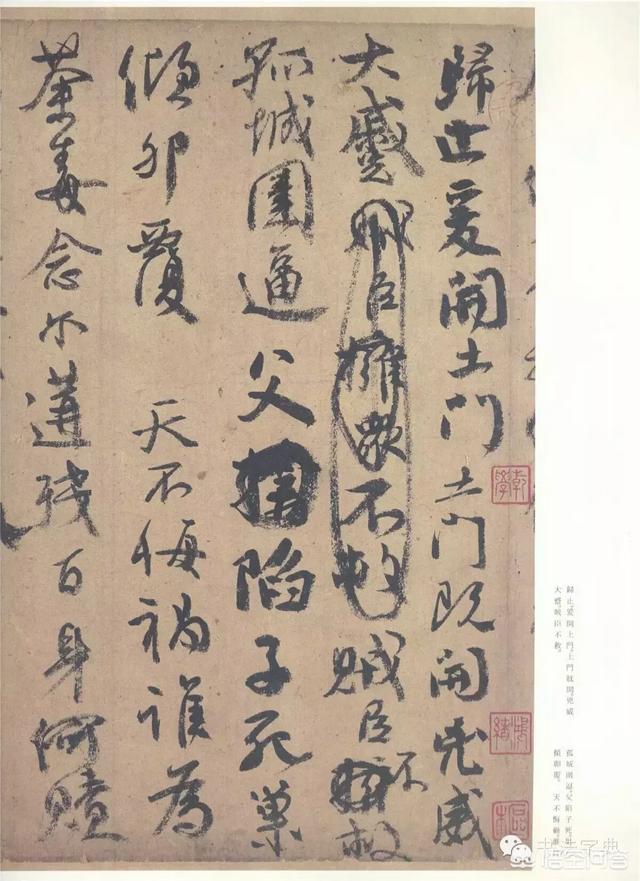 歸止爰開土門土門既開兇威
大蹙賊臣擁眾不救賊臣不擁救
孤城圍逼父陷子死巢
傾卵覆 天不悔禍誰為
荼毒念爾遘殘百身何贖
歸止。爰開土門。土門既開。兇威
大蹙。賊臣不救。
孤城圍逼。父陷子死。巢
傾卵覆。 天不悔禍。誰
乾學
书法字典
悟空问答